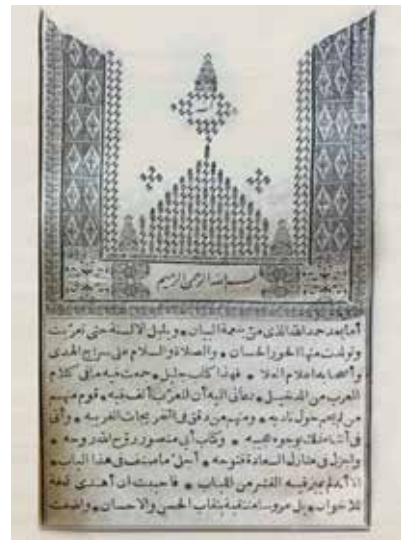 الله
بسم الله الرحمن الرحيم
أما بعد حمد الله الذى من بنعمة البيان * وبلبل الالسنة حتى تعربت
وتولدت منها الحور الحسان * والصلاة والسلام على سراج الهدى
وأصحابه اعلام العلا * فهذا كتاب جليل * جمعت فيه ما فى كلام
العرب من الدخيل * دعانى اليه أن المعرب ألف فيه * قوم منهم
من لم يحم حول ناديه * ومنهم من دقق فى التخريجات الغريبه * وأتى
فى أثناء ذلك بوجوه عجيبه * وكتاب أبى منصور روح الله روحه *
وأجزل فى منازل السعادة فتوحه * أجل ما صنف فى هذا الباب *
الا أنه لم يميز فيه القشر من اللباب * فأحببت ان أهدى تحفة
للاخوان * بل عروسا متنقبة بنقاب الحسن والاحسان * وأضفت